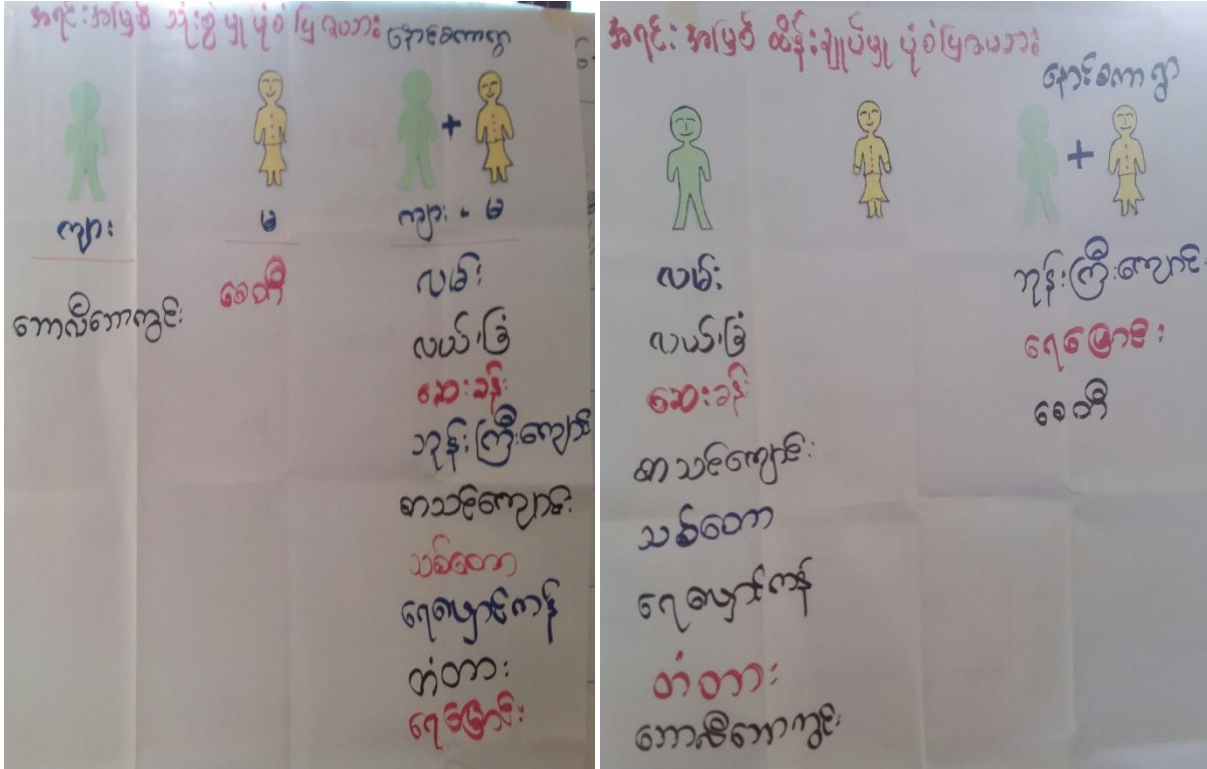 အရင်းအမြစ် သုံးစွဲမှု ပုံစံပြဇယား
နောင်စကာရွာ
+
ကျား
မ
ကျား - မ
ဘောလီဘောကွင်း
စေတီ
လမ်း
လယ်၊ခြံ
ဆေးခန်း
ဘုန်းကြီးကျောင်း
စာသင်ကျောင်း
သစ်တော
ရေလှောင်ကန်
တံတား
ရေမြောင်း
အရင်းအမြစ် ထိန်းချုပ်မှု ပုံစံပြဇယား
နောင်စကာရွာ
+
လမ်း
လယ်၊ခြံ
ဆေးခန်း
စာသင်ကျောင်း
သစ်တော
ရေလှောင်ကန်
တံတား
ဘောလီဘောကွင်း
ဘုန်းကြီးကျောင်း
ရေမြောင်း
စေတီ